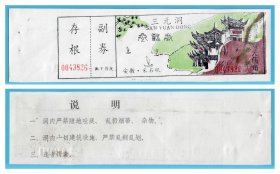 存根
副券
0043826
三元洞
SAN YUAN DONG
参观券
安徽·采石矶
0043826
说明
一、洞内严禁随地吐痰、乱扔烟蒂、杂物。
二、洞内一切建筑设施，严禁乱刻乱划。
三、